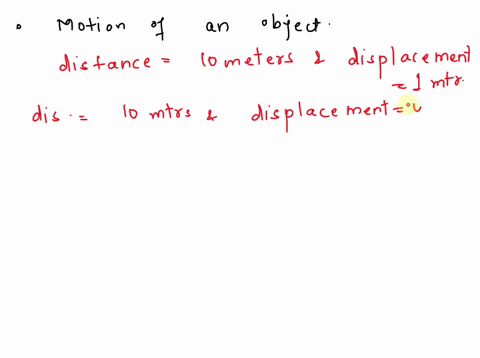 • Motion of an object.
distance = 10 meters & displacement
= 1 mtr.
dis. = 10 mtrs & displacement =